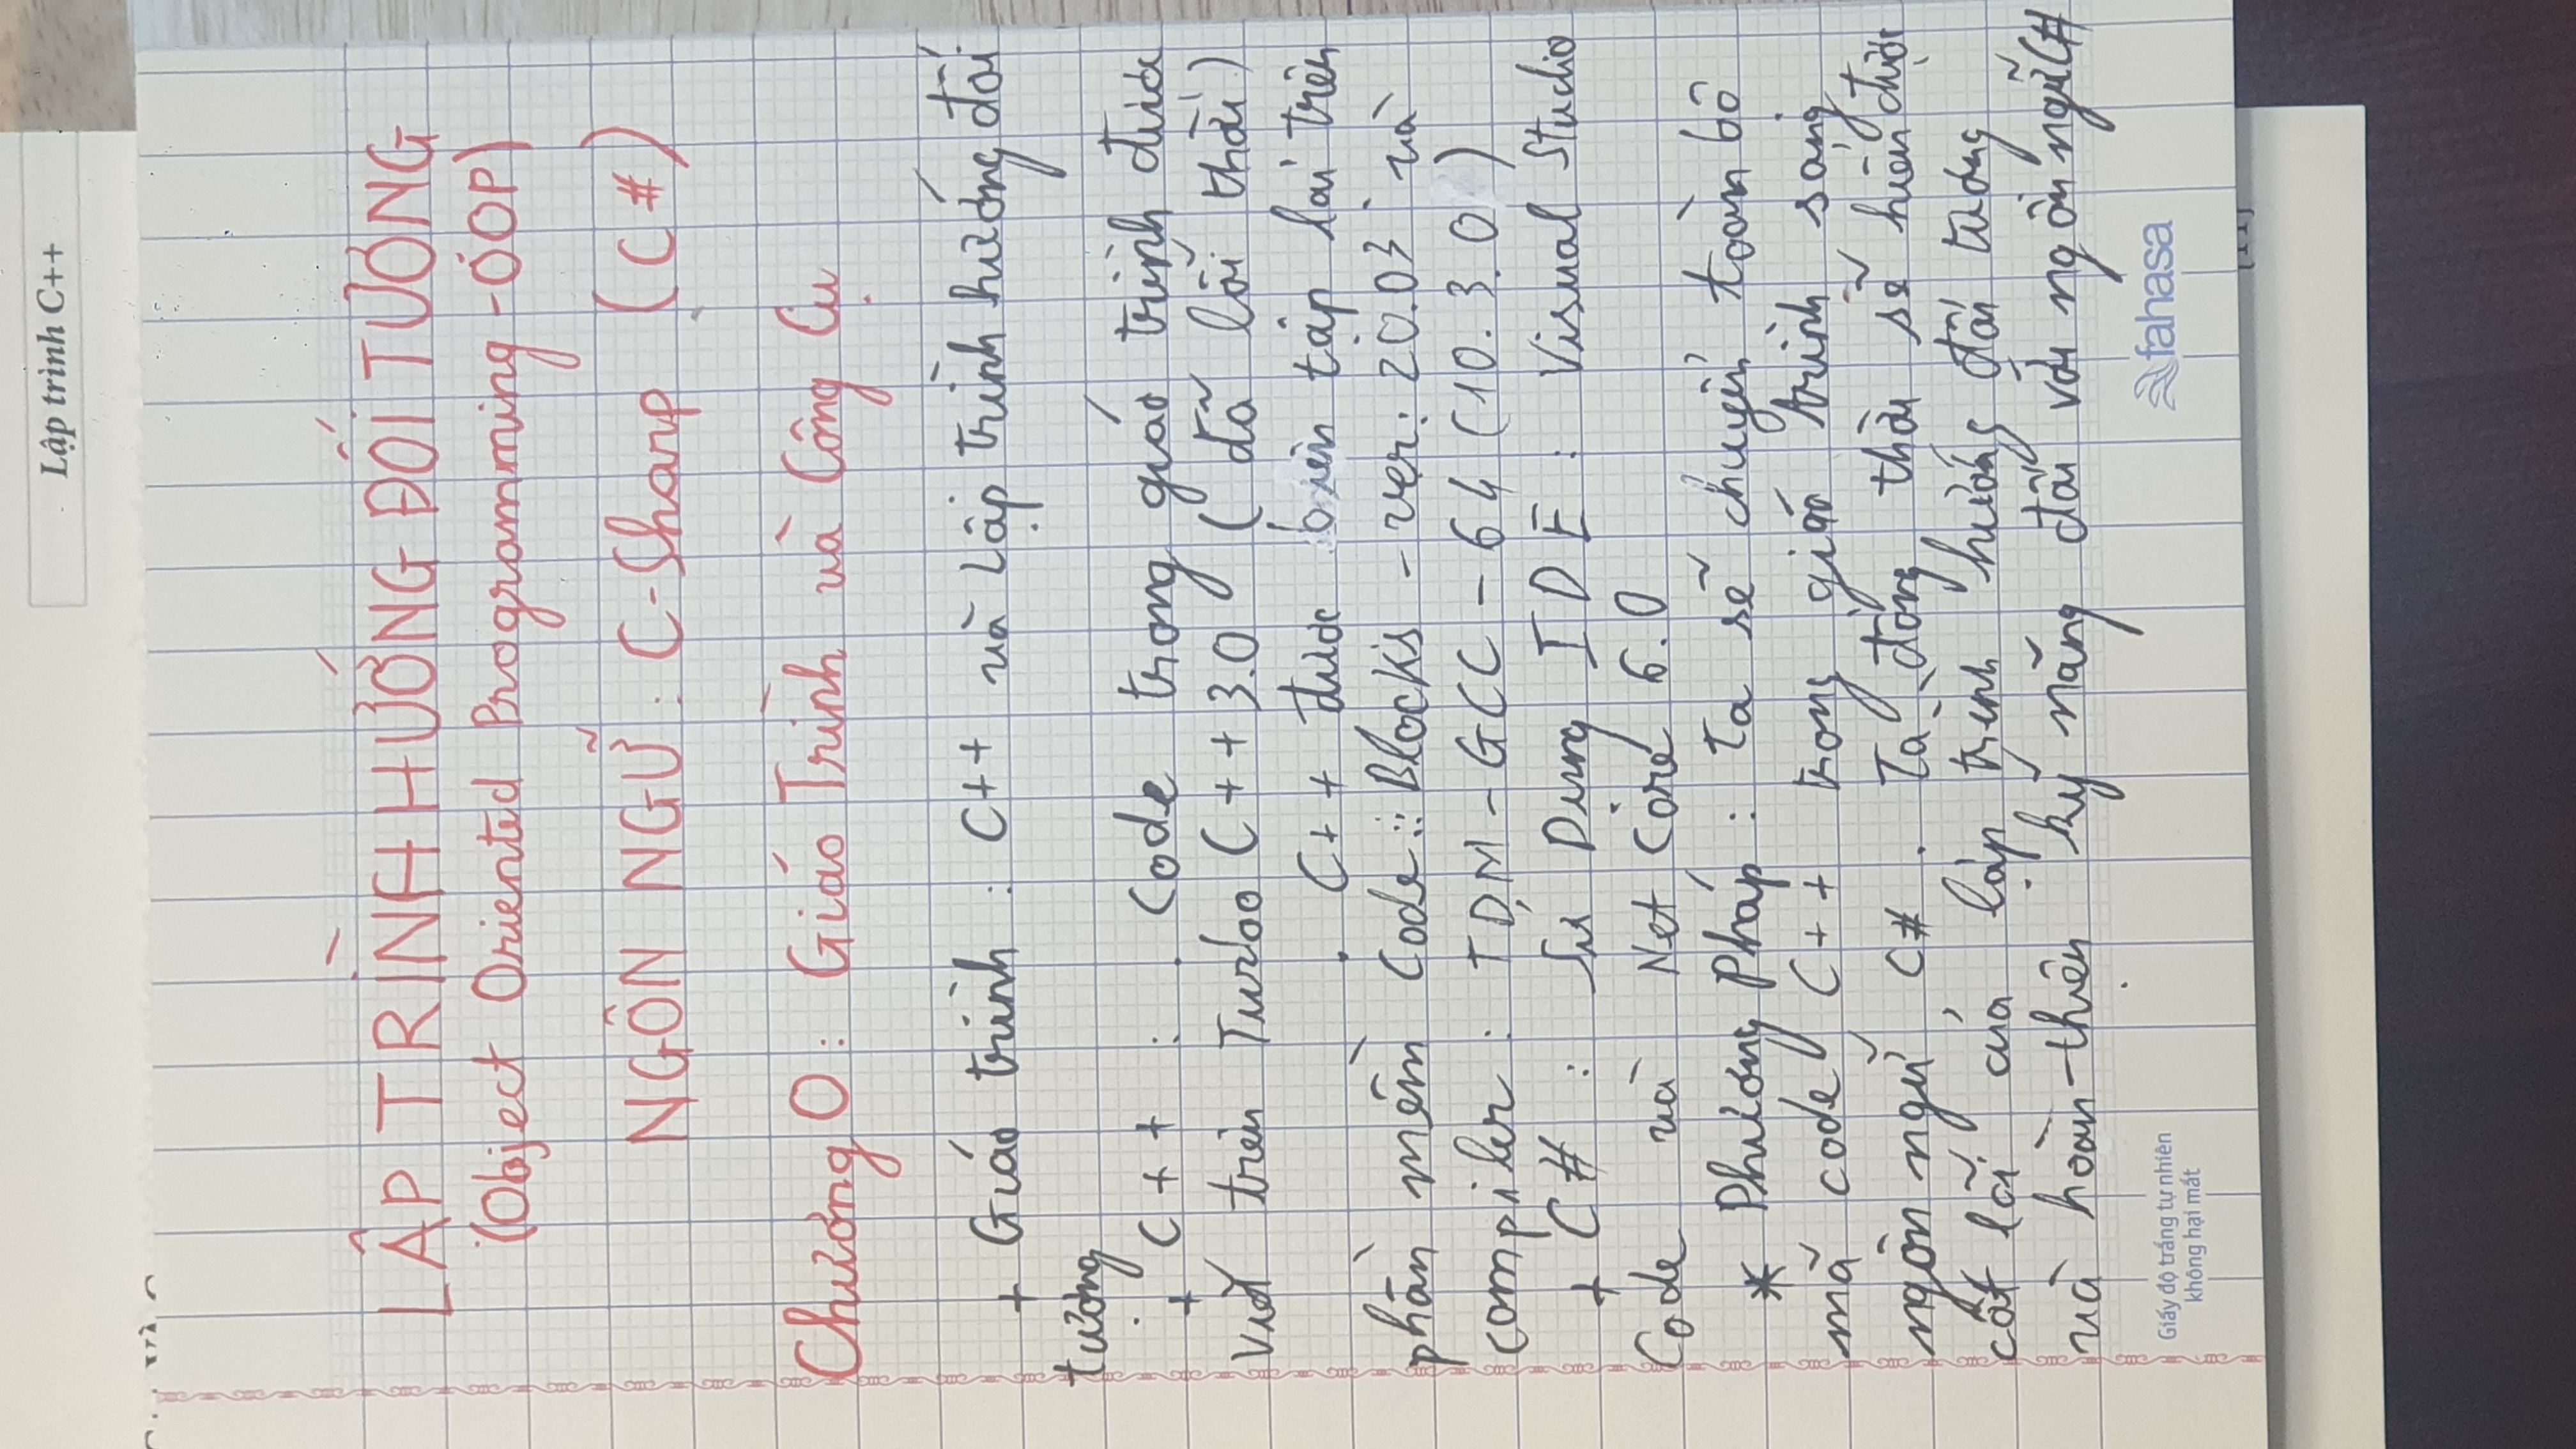 Lập trình C++
LẬP TRÌNH HƯỚNG ĐỐI TƯỢNG
(Object Oriented Programming - OOP)
NGÔN NGỮ : C-Sharp (C#)
Chương 0 : Giáo Trình và Công Cụ
+ Giáo trình : C++ và Lập trình hướng đối
tượng
+ C++ : . Code trong giáo trình được
viết trên Turbo C++ 3.0 (đã lỗi thời)
. C++ được biên tập lại trên
phần mềm Code::Blocks - ver: 20.03 và
compiler : TDM-GCC-64 (10.3.0)
+ C# : Sử Dụng IDE : Visual Studio
Code và Net Core 6.0
* Phương Pháp : Ta sẽ chuyển toàn bộ
mã code C++ trong giáo trình sang
ngôn ngữ C# . Ta đồng thời sẽ hiểu được
cốt lõi của lập trình hướng đối tượng
và hoàn thiện kỹ năng đối với ngôn ngữ C#
Giấy độ trắng tự nhiên
không hại mắt
fahasa
[11]